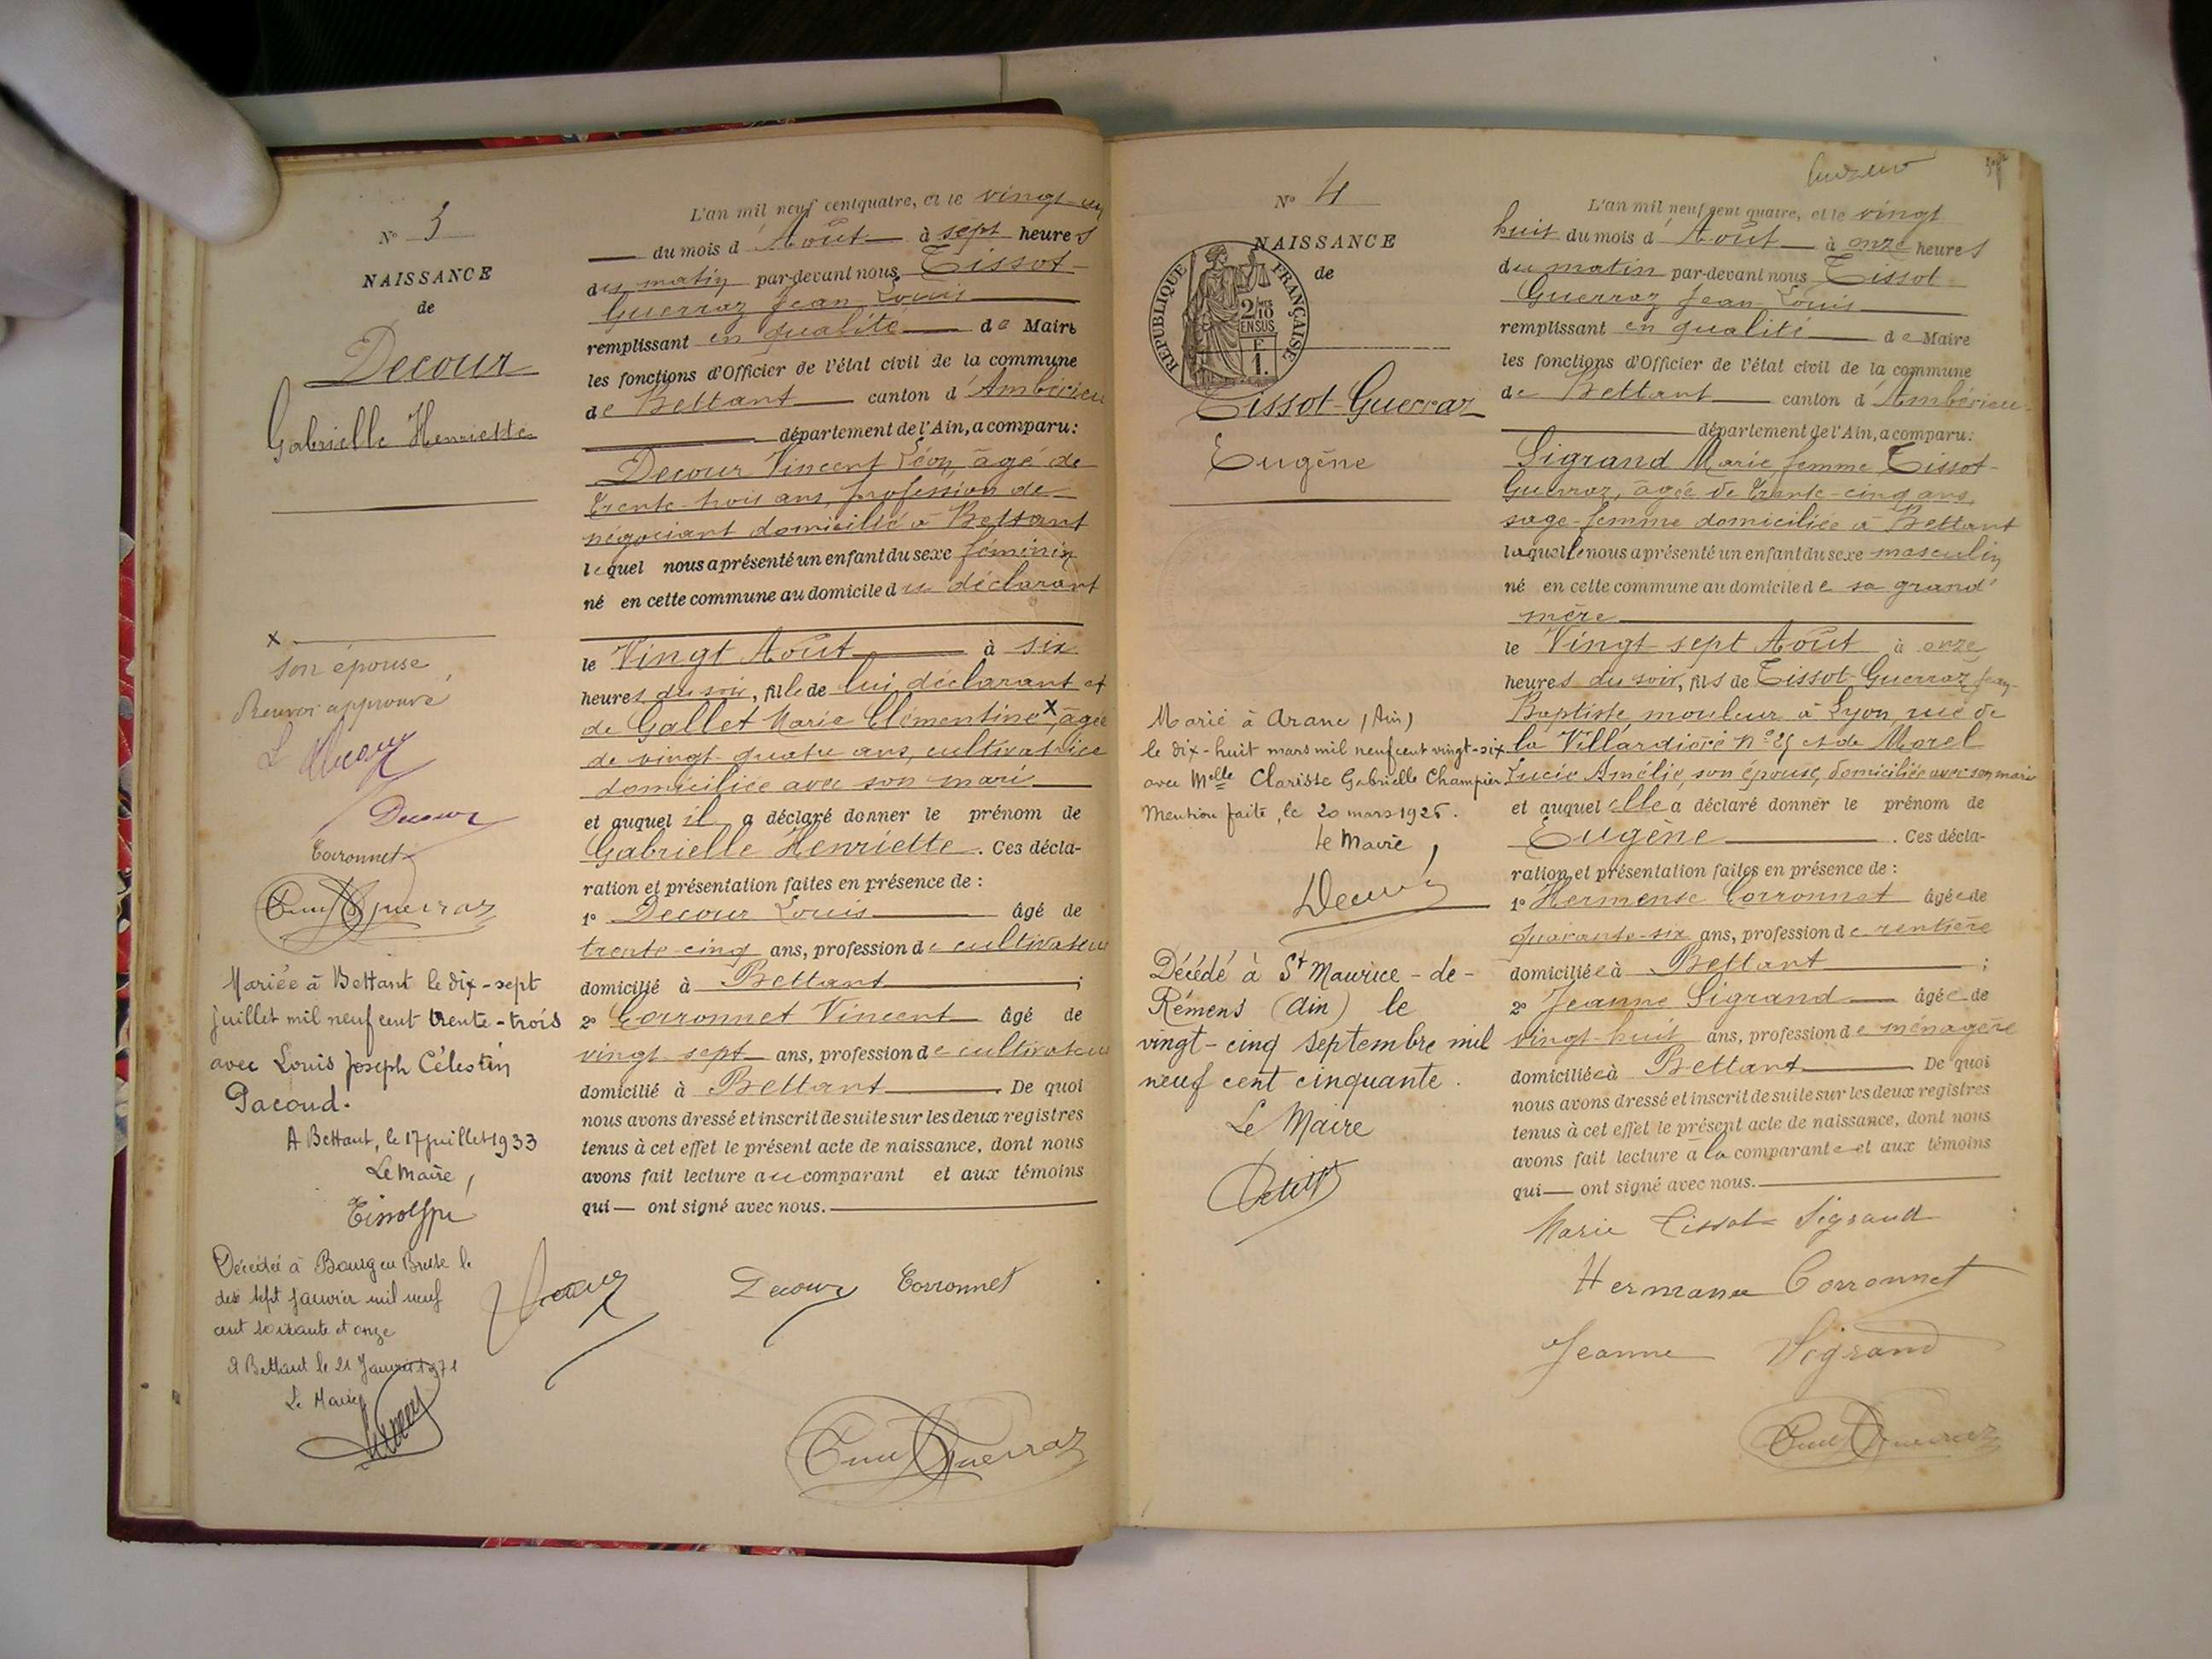 N° 3
NAISSANCE
de
Decour
Gabrielle Henriette
x
son épouse
Renvoi approuvé
Decour
Corronnet
Mariée à Bettant le dix-sept
juillet mil neuf cent trente-trois
avec Louis Joseph Célestin
Pacoud.
A Bettant, le 17 juillet 1933
Le Maire,
Décédée à Bourg en Bresse le
dix sept janvier mil neuf
cent soixante et onze
A Bettant le 21 Janvier 1971
Le Maire
L'an mil neuf cent quatre, et le vingt-un
du mois d'Août à sept heures
du matin par-devant nous, Tissot-
Guerraz Jean Louis
remplissant en qualité de Maire
les fonctions d'Officier de l'état civil de la commune
de Bettant canton d'Ambérieu
département de l'Ain, a comparu:
Decour Vincent Léon, âgé de
trente-trois ans, profession de
négociant domicilié à Bettant
lequel nous a présenté un enfant du sexe féminin
né en cette commune au domicile du déclarant
le Vingt Août à six
heures du soir, fille de lui déclarant et
de Gallet Marie Clémentine x, âgée
de vingt-quatre ans, cultivatrice
domiciliée avec son mari
et auquel il a déclaré donner le prénom de
Gabrielle Henriette. Ces décla-
ration et présentation faites en présence de :
1° Decour Louis âgé de
trente-cinq ans, profession de cultivateur
domicilié à Bettant ;
2° Corronnet Vincent âgé de
vingt-sept ans, profession de cultivateur
domicilié à Bettant. De quoi
nous avons dressé et inscrit de suite sur les deux registres
tenus à cet effet le présent acte de naissance, dont nous
avons fait lecture au comparant et aux témoins
qui ont signé avec nous.
Decour Corronnet
Guerraz
N° 4
NAISSANCE
de
RÉPUBLIQUE FRANÇAISE
2/10 EN SUS
F
1.
Tissot-Guerraz
Eugène
Marié à Aranc (Ain)
le dix-huit mars mil neuf cent vingt-six
avec Melle Clarisse Gabrielle Champier
Mention faite, le 20 mars 1926.
Le Maire,
Décédé à St Maurice-de-
Rémens (Ain) le
vingt-cinq septembre mil
neuf cent cinquante.
Le Maire
L'an mil neuf cent quatre, et le vingt
huit du mois d'Août à onze heures
du matin par-devant nous Tissot-
Guerraz Jean Louis
remplissant en qualité de Maire
les fonctions d'Officier de l'état civil de la commune
de Bettant canton d'Ambérieu
département de l'Ain, a comparu:
Sigrand Marie femme Tissot-
Guerraz, âgée de trente-cinq ans,
sage-femme domiciliée à Bettant
laquelle nous a présenté un enfant du sexe masculin
né en cette commune au domicile de sa grand'
mère
le Vingt sept Août à onze
heures du soir, fils de Tissot-Guerraz Jean-
Baptiste mouleur à Lyon, rue de
la Villardière n° 25 et de Morel
Lucie Amélie, son épouse, domiciliée avec son mari
et auquel elle a déclaré donner le prénom de
Eugène. Ces décla-
ration et présentation faites en présence de :
1° Hermense Corronnet âgée de
quarante-six ans, profession de rentière
domiciliée à Bettant ;
2° Jeanne Sigrand âgée de
vingt-huit ans, profession de ménagère
domiciliée à Bettant De quoi
nous avons dressé et inscrit de suite sur les deux registres
tenus à cet effet le présent acte de naissance, dont nous
avons fait lecture à la comparante et aux témoins
qui ont signé avec nous.
Marie Tissot Sigrand
Hermance Corronnet
Jeanne Sigrand
Guerraz